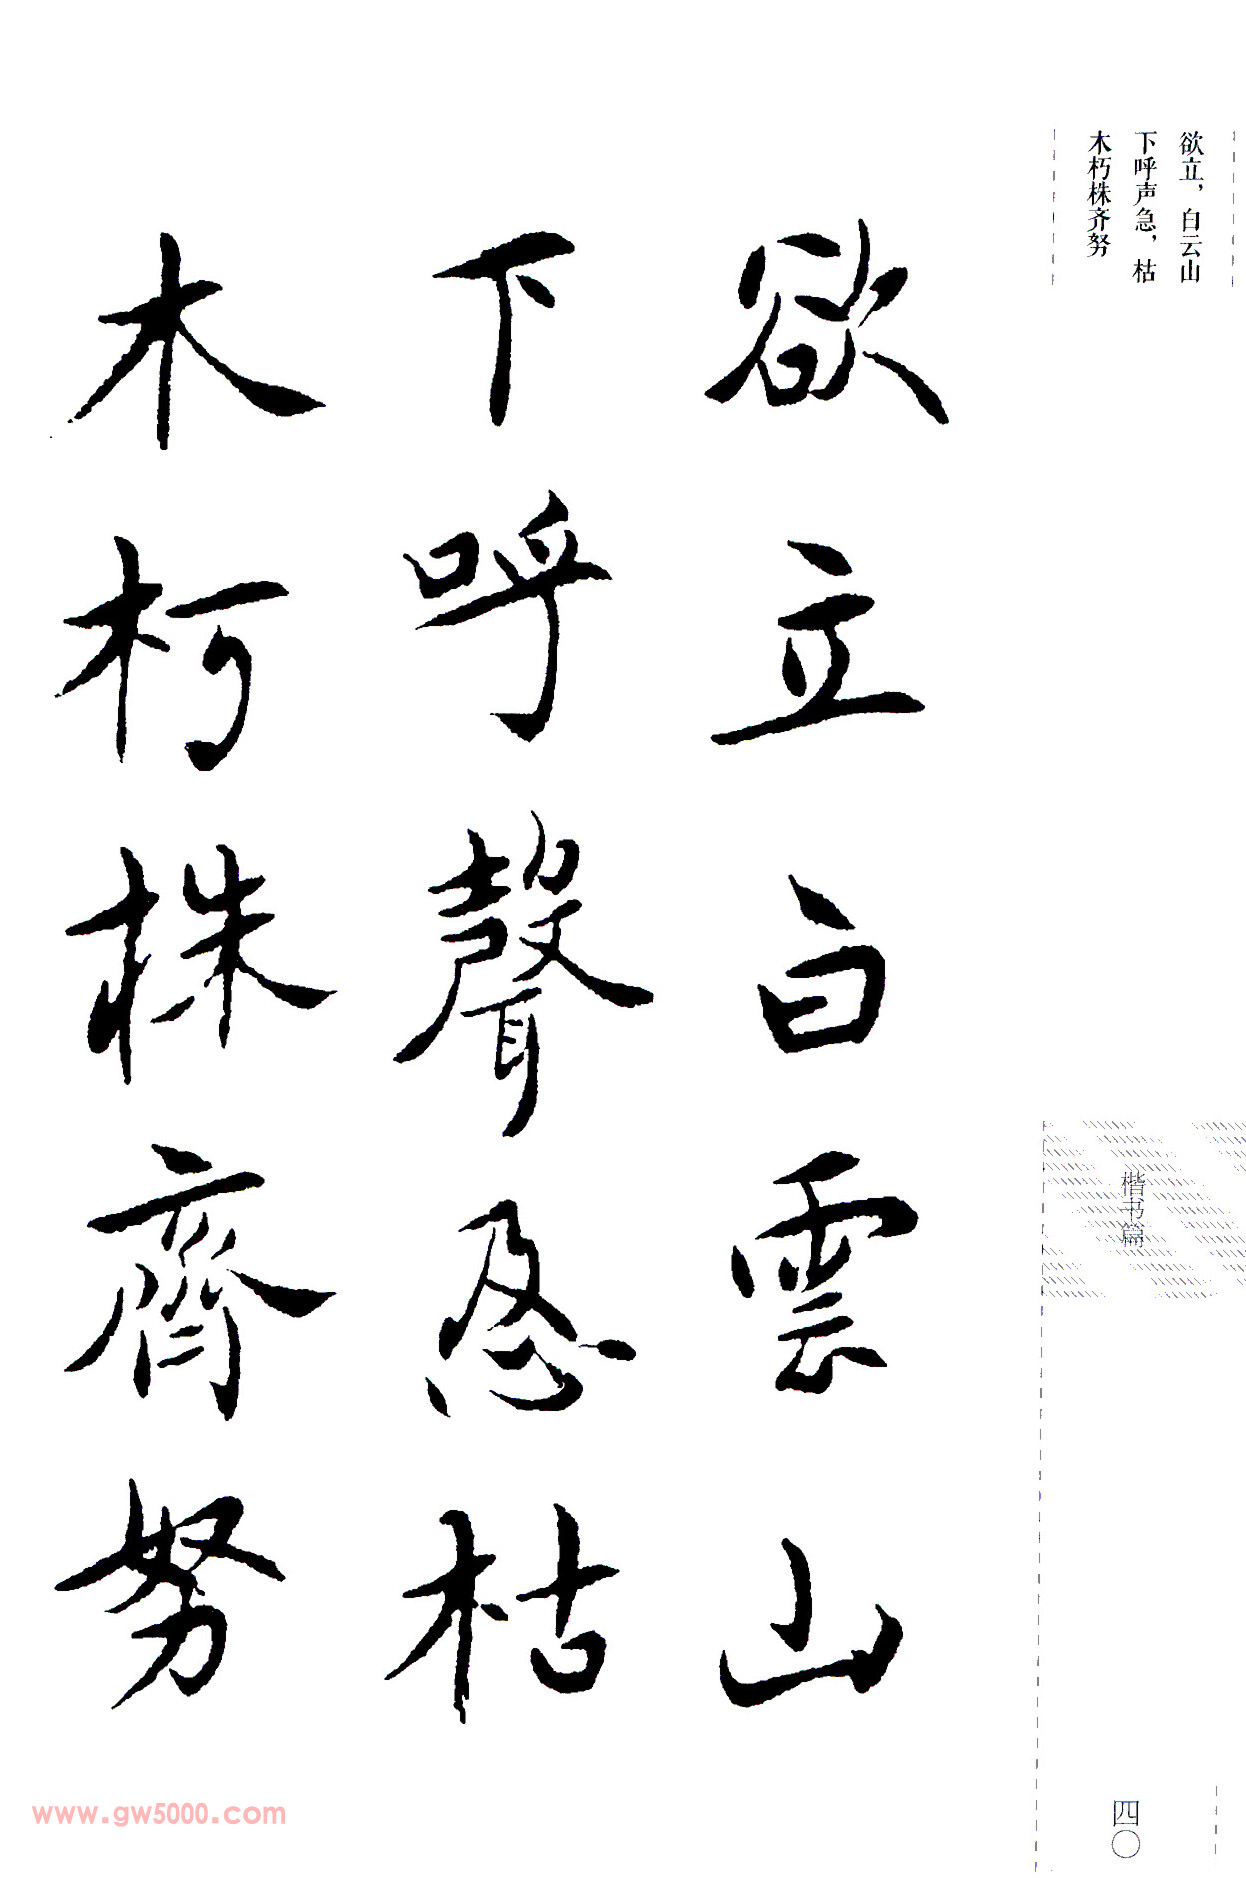 欲立，白云山
下呼声急，枯
木朽株齐努
欲立白雲山
下呼聲急枯
木朽株齊努
楷书篇
四〇
www.gw5000.com